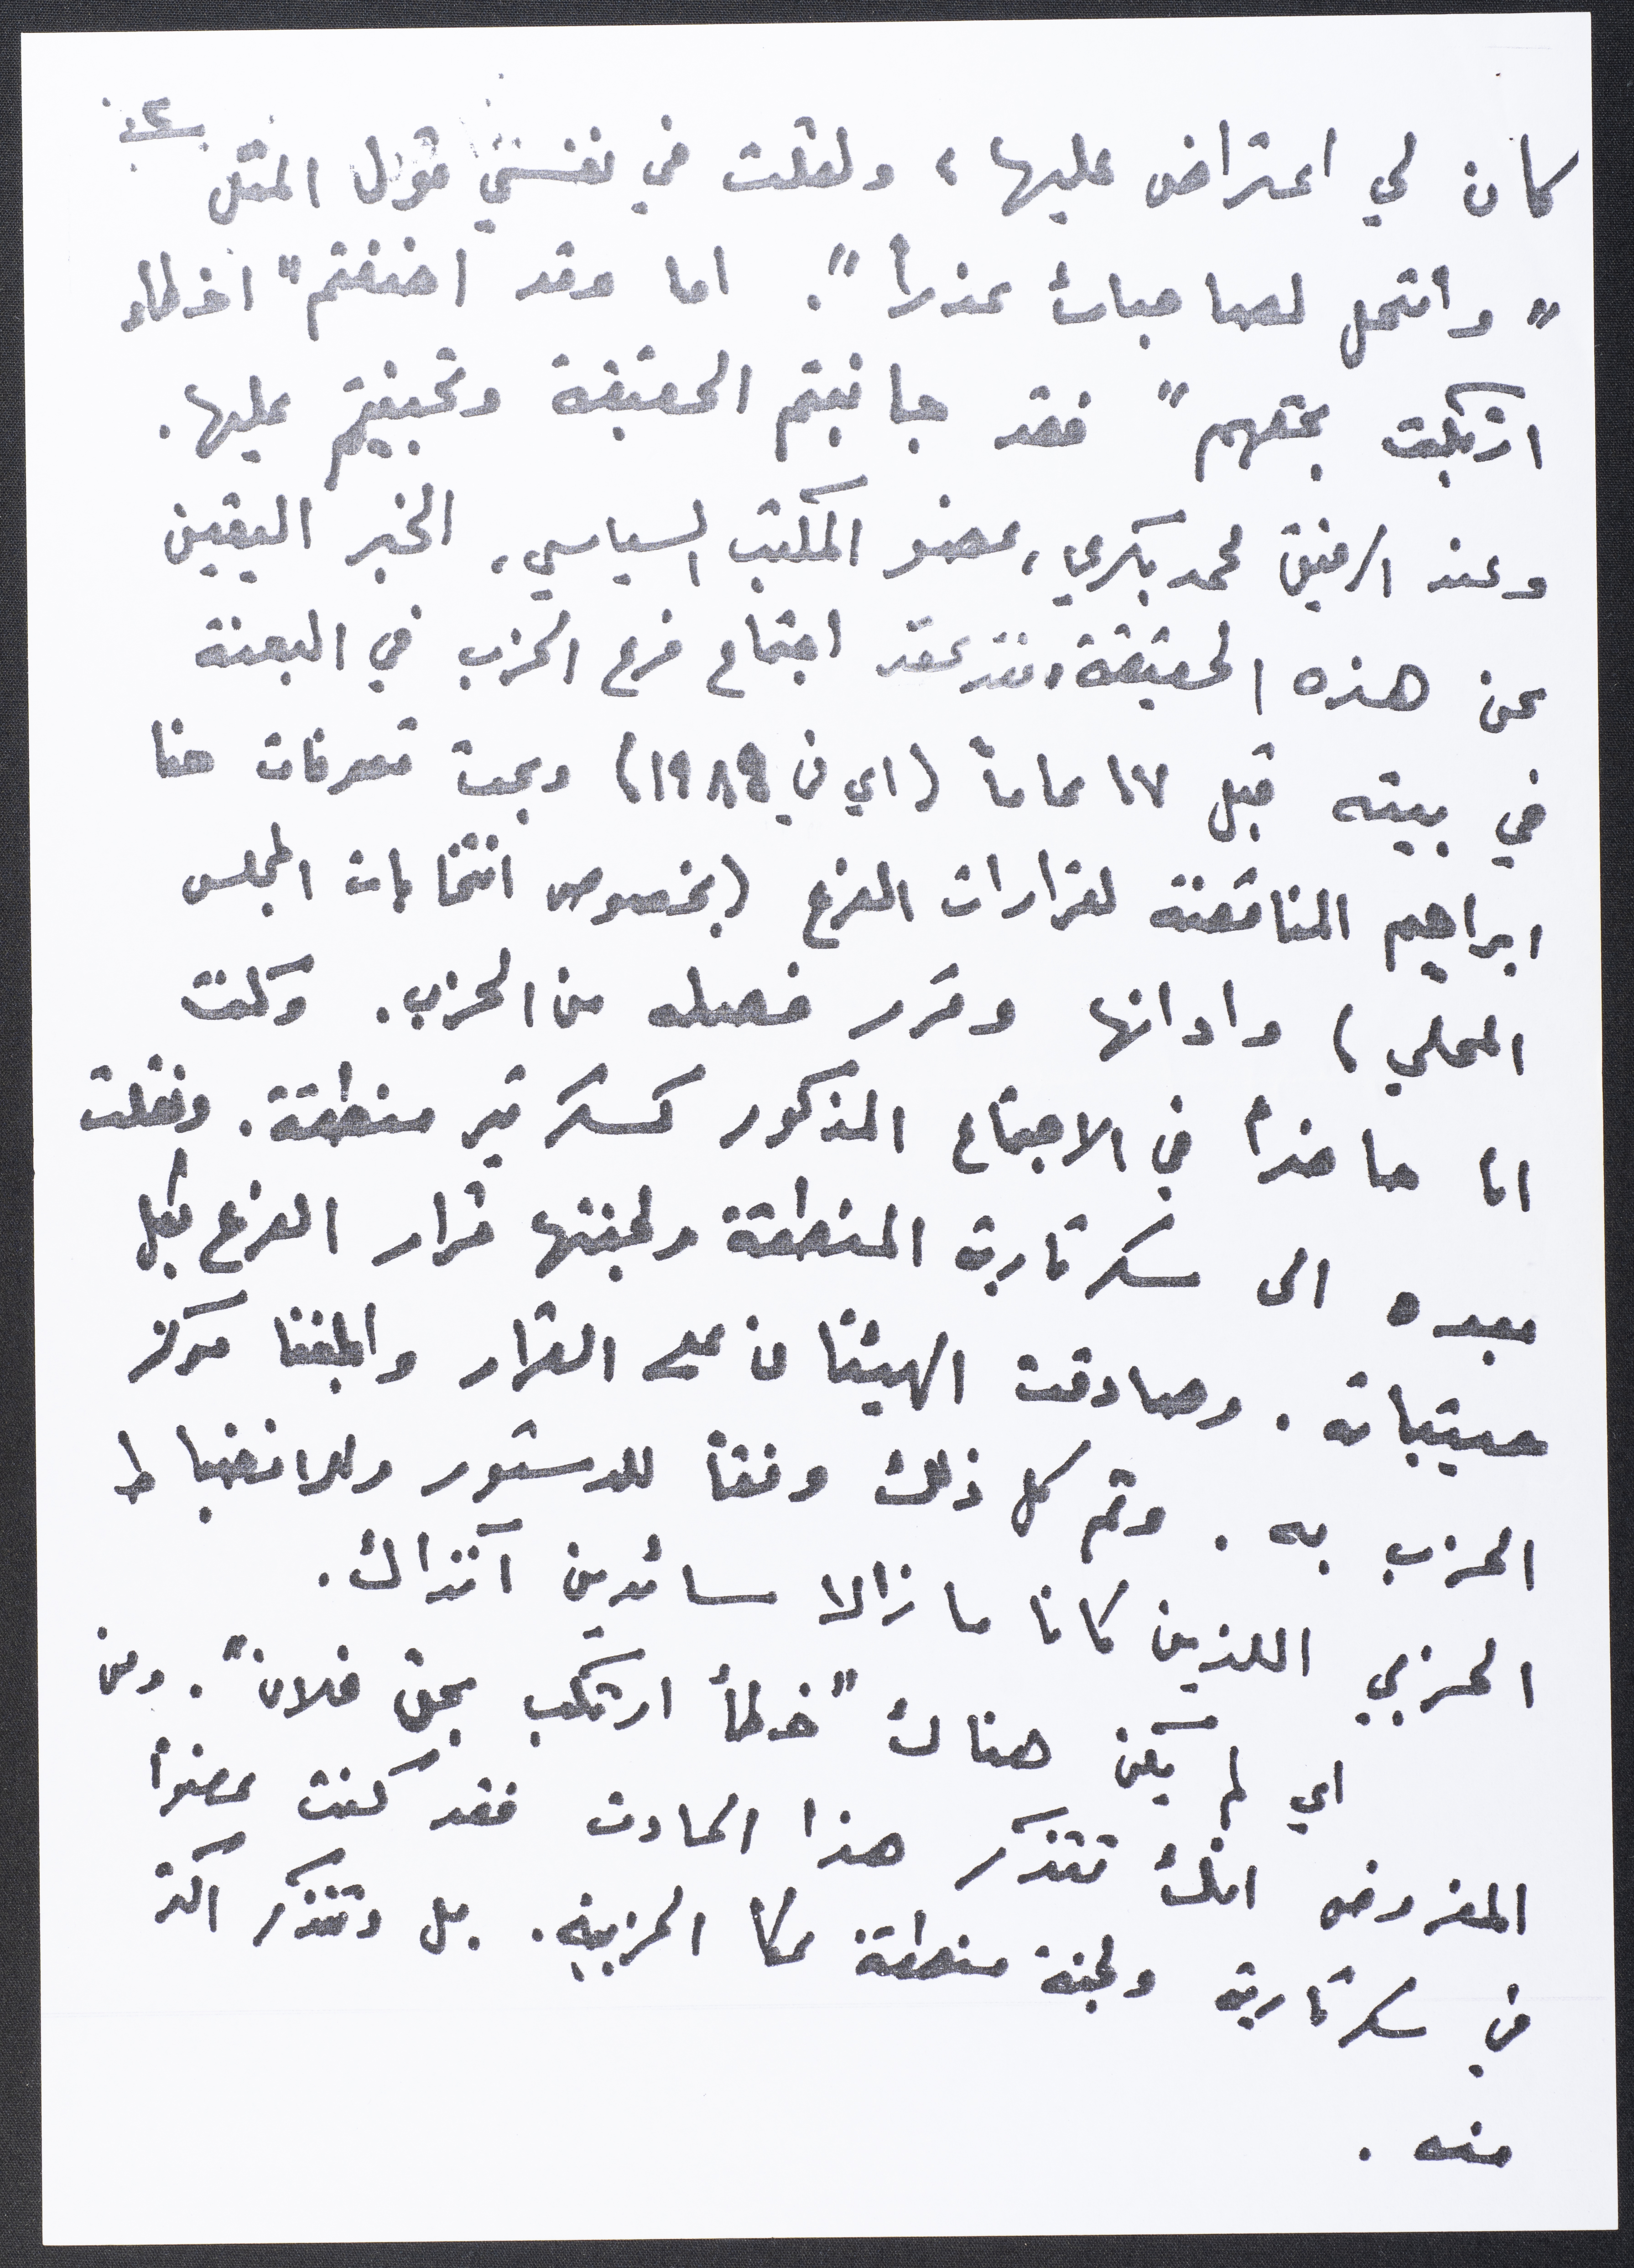 ٢
كان لي اعتراض عليها، ولقلت في نفسي قول المثل
"والتمس لصاحبك عذراً". اما وقد اضفتم "اخطاء
ارتكبت بحقهم" فقد جانبتم الحقيقة وتجنيتم عليها.
وعند الرفيق محمد بكري، عضو المكتب السياسي، الخبر اليقين
عن هذه الحقيقة، فقد عقد اجتماع فرع الحزب في البعنة
في بيته قبل ١٧ عاماً (اي في ١٩٨٩) وبحث تصرفات حنا
ابراهيم المناقضة لقرارات الفرع (بخصوص انتخابات المجلس
المحلي) وادانها وقرر فصله من الحزب. وكنت
انا حاضراً في الاجتماع المذكور كسكرتير منطقة. ونقلت
بعده الى سكرتارية المنطقة ولجنتها قرار الفرع بكل
حيثياته. وصادقت الهيئتان على القرار وابلغنا مركز
الحزب به. وتم كل ذلك وفقاً للدستور وللانضباط
الحزبي اللذين كانا ما زالا سائدين آنذاك.
اي لم يكن هناك "خطأ ارتكب بحق فلان". ومن
المفروض انك تتذكر هذا الحادث فقد كنت عضواً
في سكرتارية ولجنة منطقة عكا الحزبية. بل وتتذكر اكثر
منه.